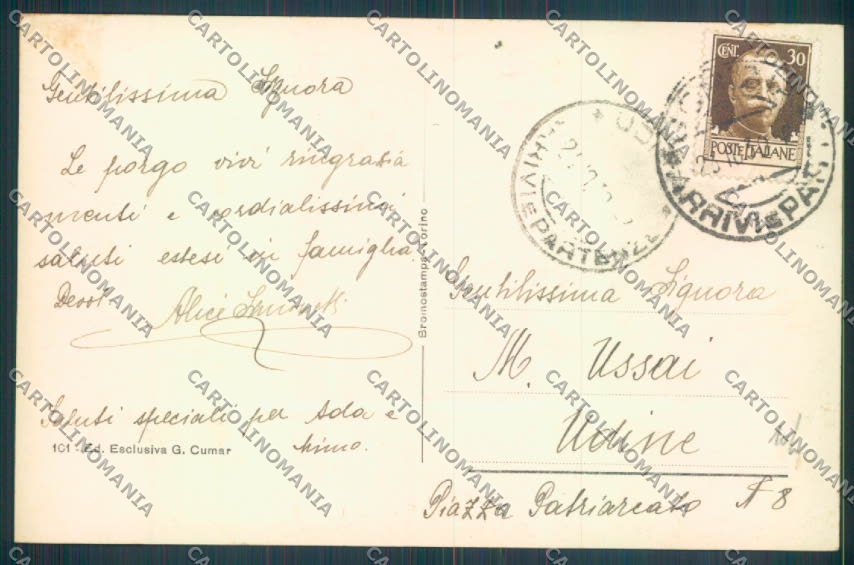 Gentilissima Signora
Le porgo vivi ringrazia
menti e cordialissimi
saluti estesi in famiglia.
Devot
Alice
Saluti speciali per Ada e
Mimo.
101 - Ed. Esclusiva G. Cumar
Bromostampa - Torino
CENT. 30
POSTE ITALIANE
ARRIVI E PARTENZE
ARRIVI E PART
Gentilissima Signora
M. Ussai
Udine
Piazza Patriarcato N 8
CARTOLINOMANIA